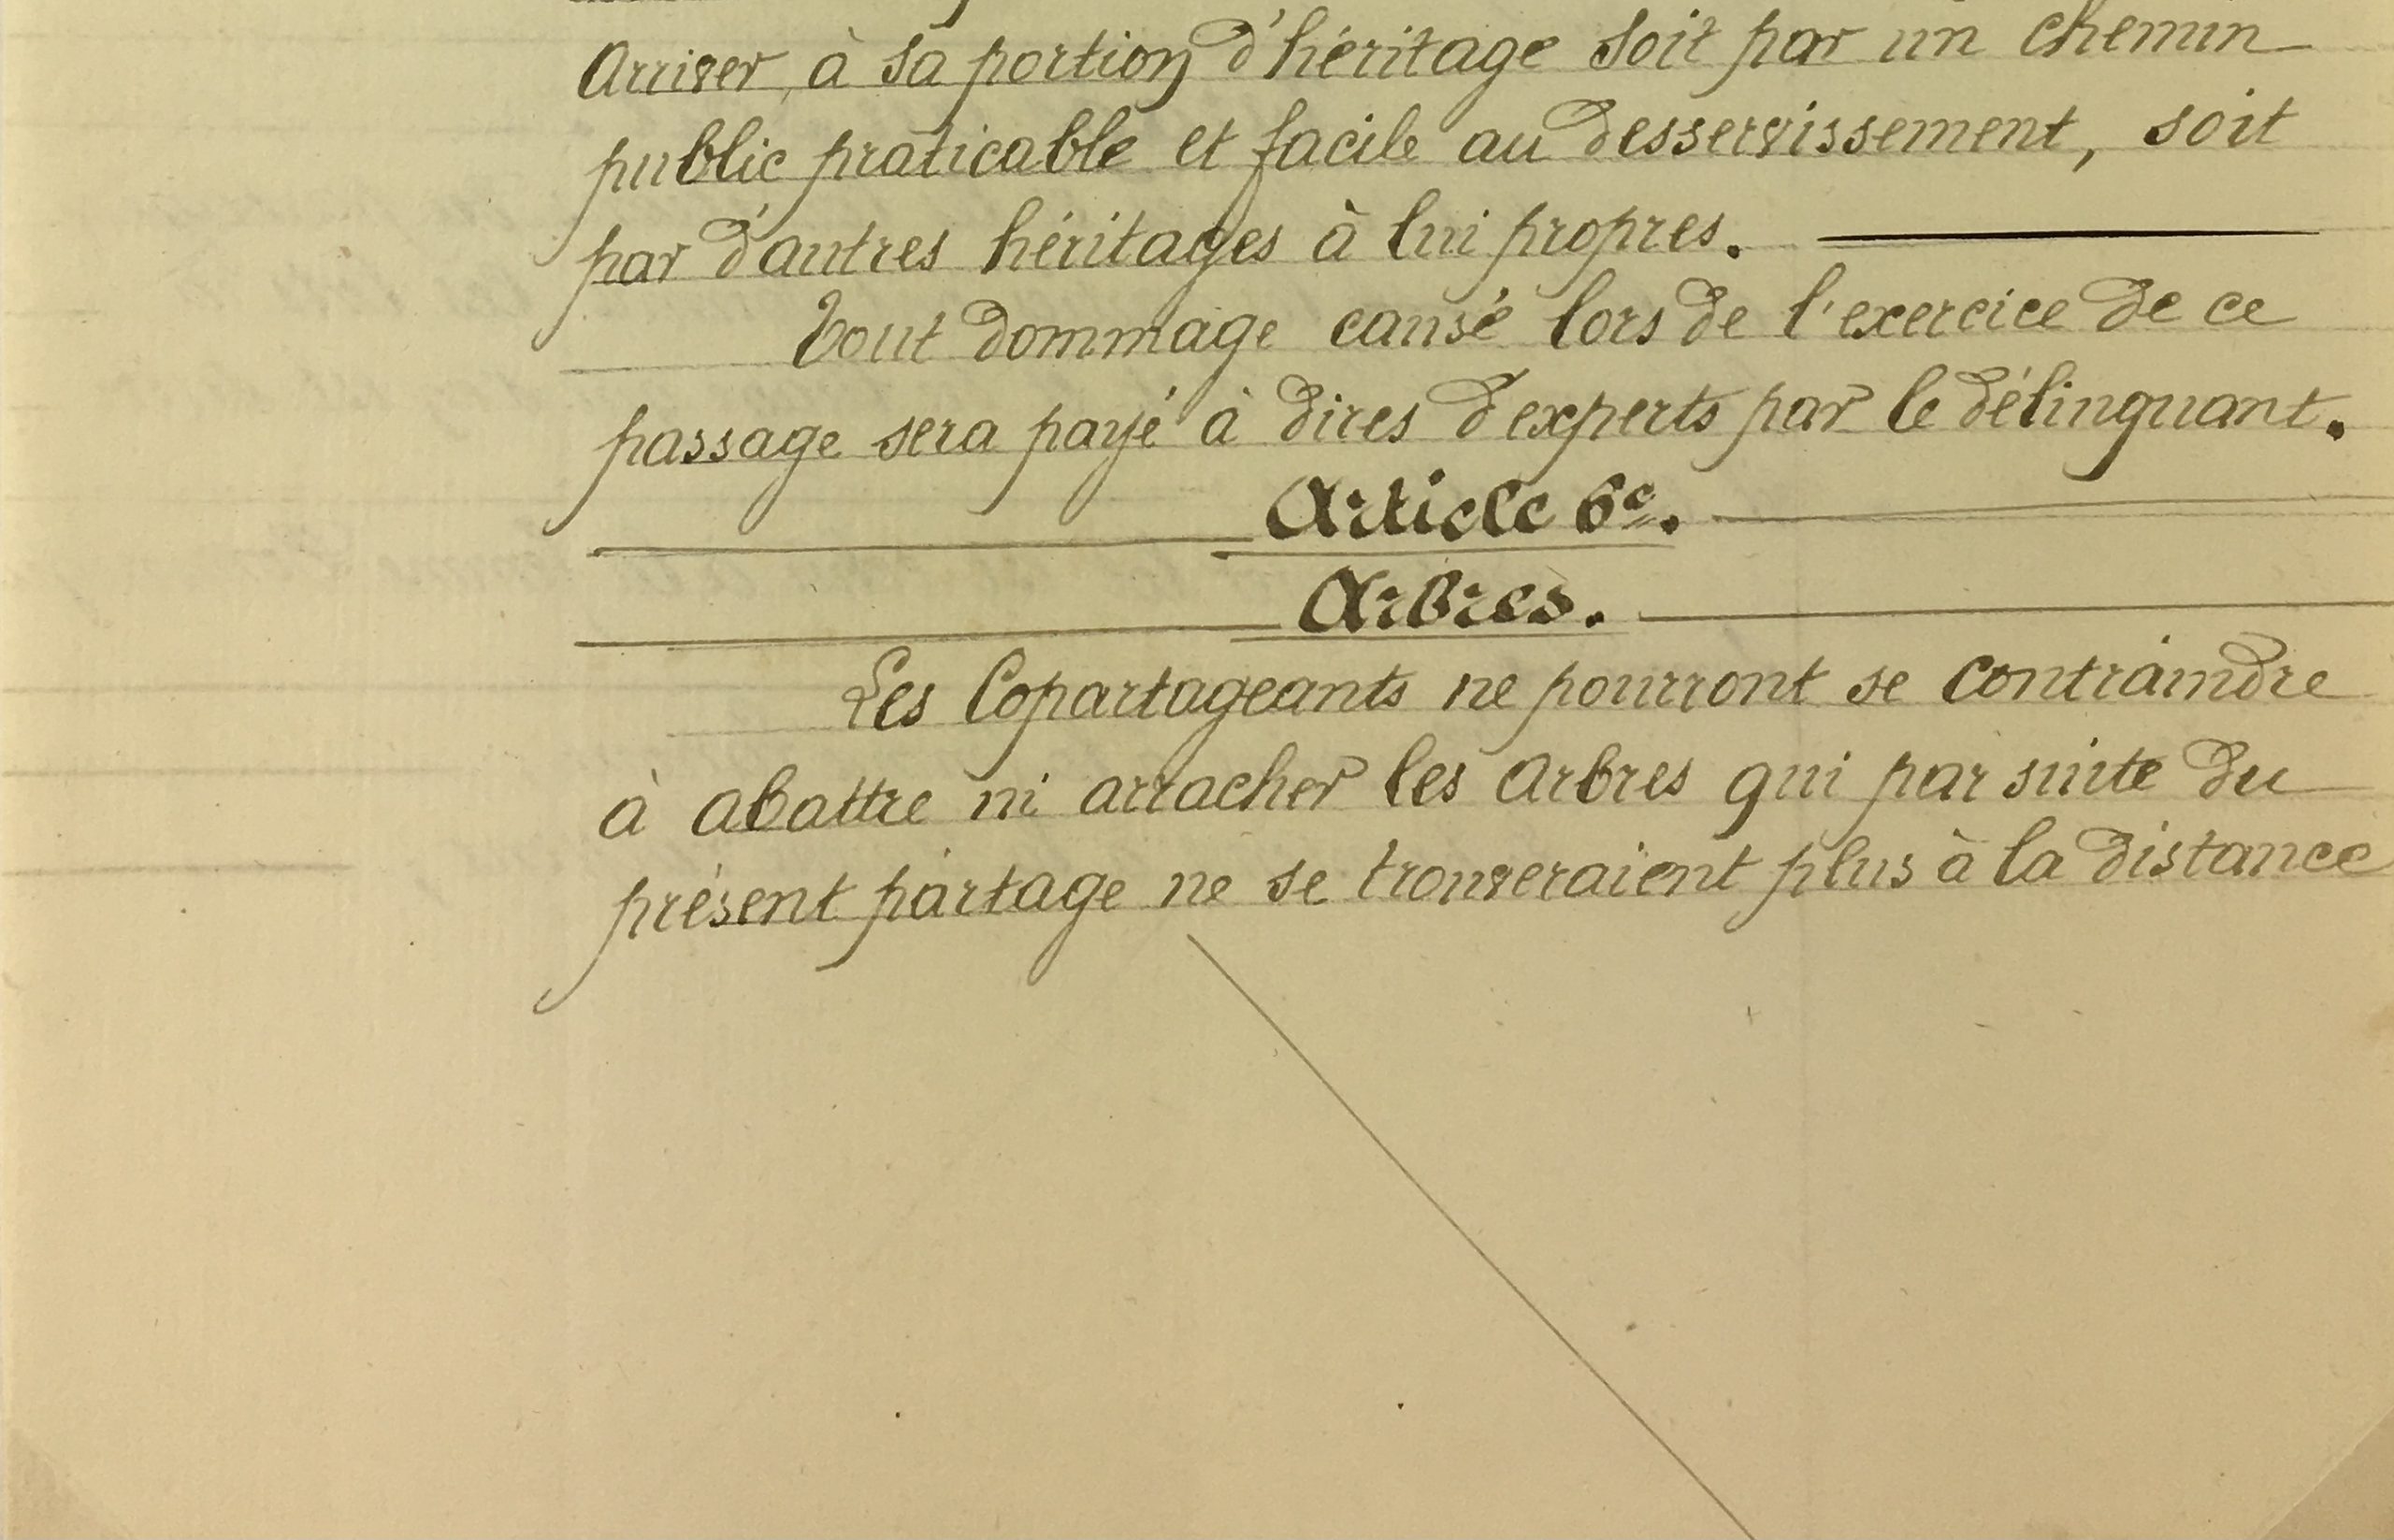 Arriver à sa portion d'héritage soit par un chemin
public praticable et facile au desservissement, soit
par d'autres héritages à lui propres.
Tout dommage causé lors de l'exercice de ce
passage sera payé à dires d'experts par le délinquant.
Article 6e.
Arbres.
Les Copartageants ne pourront se contraindre
à abattre ni arracher les arbres qui par suite du
présent partage ne se trouveraient plus à la distance